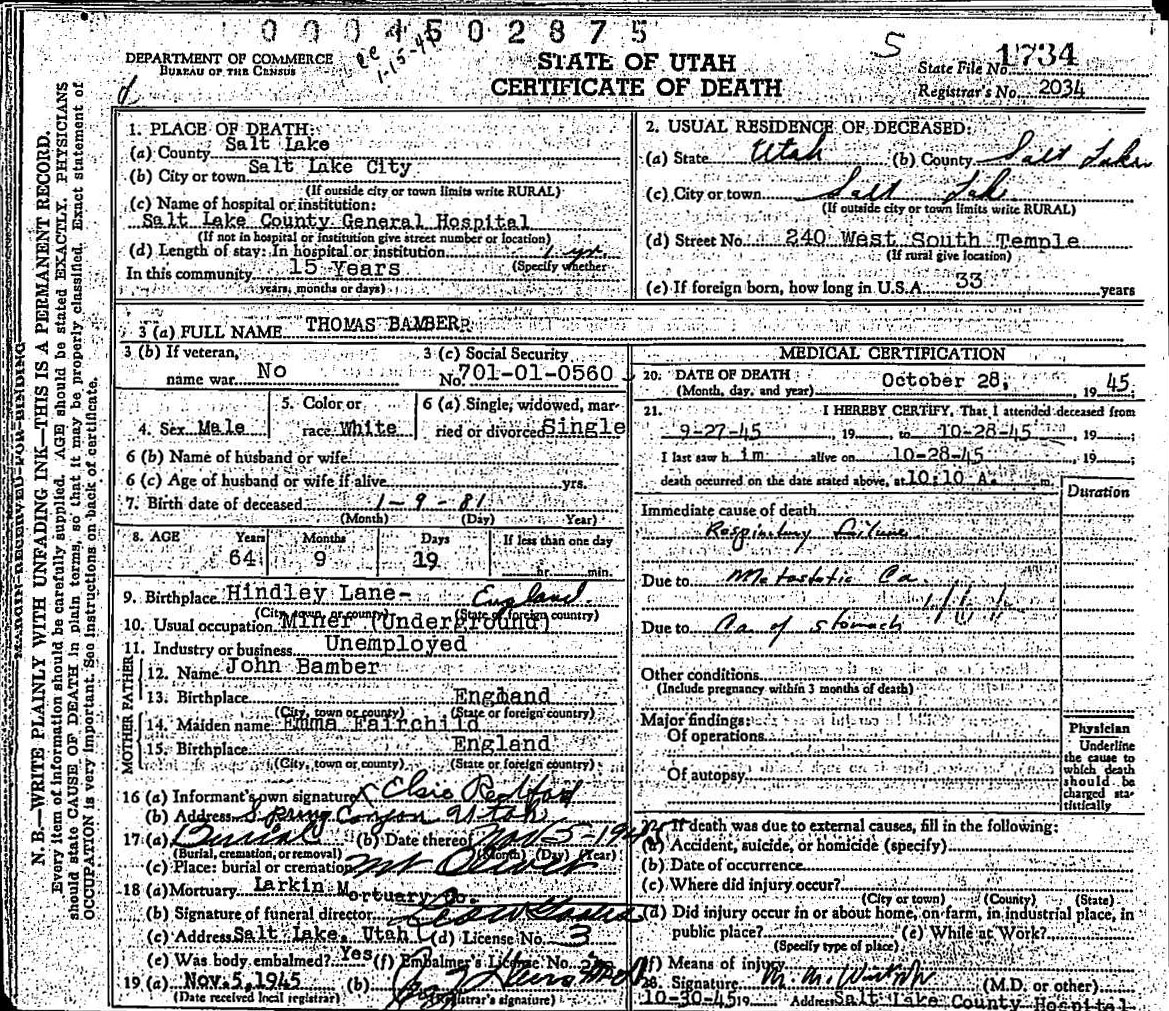 0004502875
1-15-4
DEPARTMENT OF COMMERCE
BUREAU OF THE CENSUS
STATE OF UTAH
CERTIFICATE OF DEATH
5
State File No. 1734
Registrar's No. 2034
MARGIN RESERVED FOR BINDING
N. B.—WRITE PLAINLY WITH UNFADING INK—THIS IS A PERMANENT RECORD.
Every item of information should be carefully supplied. AGE should be stated EXACTLY. PHYSICIANS
should state CAUSE OF DEATH in plain terms, so that it may be properly classified. Exact statement of
OCCUPATION is very important. See Instructions on back of certificate.
1. PLACE OF DEATH:
(a) County Salt Lake
(b) City or town Salt Lake City
(If outside city or town limits write RURAL)
(c) Name of hospital or institution:
Salt Lake County General Hospital
(If not in hospital or institution give street number or location)
(d) Length of stay: In hospital or institution 1 yr.
(Specify whether
In this community 15 Years
years, months or days)
2. USUAL RESIDENCE OF DECEASED:
(a) State Utah (b) County Salt Lake
(c) City or town Salt Lak
(If outside city or town limits write RURAL)
(d) Street No. 240 West South Temple
(If rural give location)
(e) If foreign born, how long in U.S.A. 33 years
3 (a) FULL NAME THOMAS BAMBER
3 (b) If veteran, name war No
3 (c) Social Security No. 701-01-0560
4. Sex Male
5. Color or race White
6 (a) Single, widowed, married or divorced Single
6 (b) Name of husband or wife
6 (c) Age of husband or wife if alive yrs.
7. Birth date of deceased 1-9-81
(Month) (Day) Year)
8. AGE Years Months Days If less than one day
64 9 19 hr. min.
9. Birthplace Hindley Lane- England
(City, town, or county) (State or foreign country)
10. Usual occupation Miner (Underground)
11. Industry or business Unemployed
FATHER
12. Name John Bamber
13. Birthplace England
(City, town or county) (State or foreign country)
MOTHER
14. Maiden name Emma Fairchild
15. Birthplace England
(City, town or county) (State or foreign country)
16 (a) Informant's own signature X Elsie Redford
(b) Address Spring Canyon Utah
17 (a) Burial (b) Date thereof Nov 5-1945
(Burial, cremation, or removal) (Month) (Day) (Year)
(c) Place: burial or cremation Mt Olivet
18 (a) Mortuary Larkin Mortuary Co.
(b) Signature of funeral director
(c) Address Salt Lake, Utah (d) License No. 3
(e) Was body embalmed? Yes (f) Embalmer's License No.
19 (a) Nov. 5, 1945 (b)
(Date received local registrar) (Registrar's signature)
MEDICAL CERTIFICATION
20. DATE OF DEATH October 28, 1945.
(Month, day, and year)
21. I HEREBY CERTIFY, That I attended deceased from
9-27-45, 19 , to 10-28-45, 19 ;
I last saw him alive on 10-28-45, 19 ;
death occurred on the date stated above, at 10:10 A. m.
Duration
Immediate cause of death
Respiratory Failure
Due to Metastatic Ca
Due to Ca of stomach
Other conditions
(Include pregnancy within 3 months of death)
Major findings:
Of operations
Of autopsy
Physician
Underline
the cause to
which death
should be
charged sta-
tistically
22. If death was due to external causes, fill in the following:
(a) Accident, suicide, or homicide (specify)
(b) Date of occurrence
(c) Where did injury occur?
(City or town) (County) (State)
(d) Did injury occur in or about home, on farm, in industrial place, in
public place? (e) While at Work?
(Specify type of place)
(f) Means of injury
Signature (M.D. or other)
10-30-45 19 Address Salt Lake County Hospital